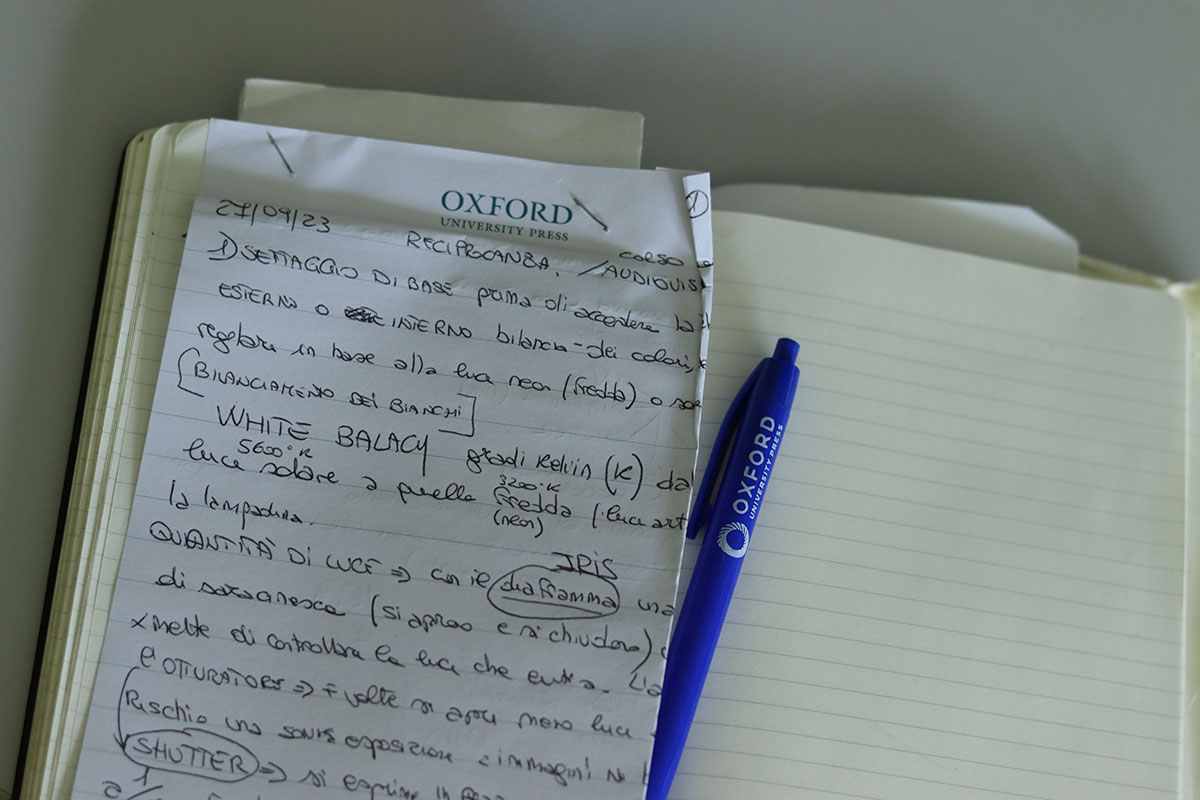 OXFORD
UNIVERSITY PRESS
1
27/09/23
RECIPROCANZA. / CORSO
AUDIOVIS
1) SETTAGGIO DI BASE prima di accedere la
ESTERNO O INTERNO bilancia-dei colori,
regolare in base alla luce neon (fredda) o
[BILANCIAMENO DEI BIANCHI]
WHITE BALACY gradi Kelvin (K) dal
5600°K
luce solare a quella fredda (luce art
3200°K
(neon)
la lampadina.
QUANTITÀ DI LUCE => con il diaframma una
IRIS
di saracinesca (si aprono e si chiudono)
xmette di controllare la luce che entra. L'a
OTTURATORE => + volte si apre meno luce
Rischio una sovra esposizione e immagini
SHUTTER => si esprime in
1
2
OXFORD
UNIVERSITY PRESS